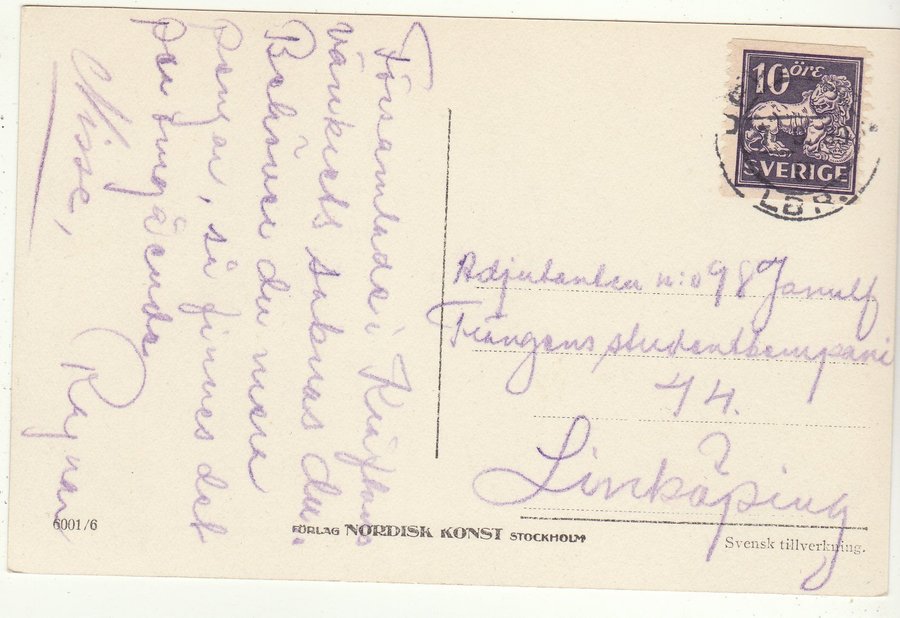 Församlade i
vänkrets saknas du.
Behöver du mera
pengar, så finnes det
per omgående
Nisse, Ragnar
10 ÖRE
SVERIGE
LBR
Adjutanten n:o 98 Janulf
Trängens studentkompani
44.
Linköping
6001/6
FÖRLAG NORDISK KONST STOCKHOLM
Svensk tillverkning.